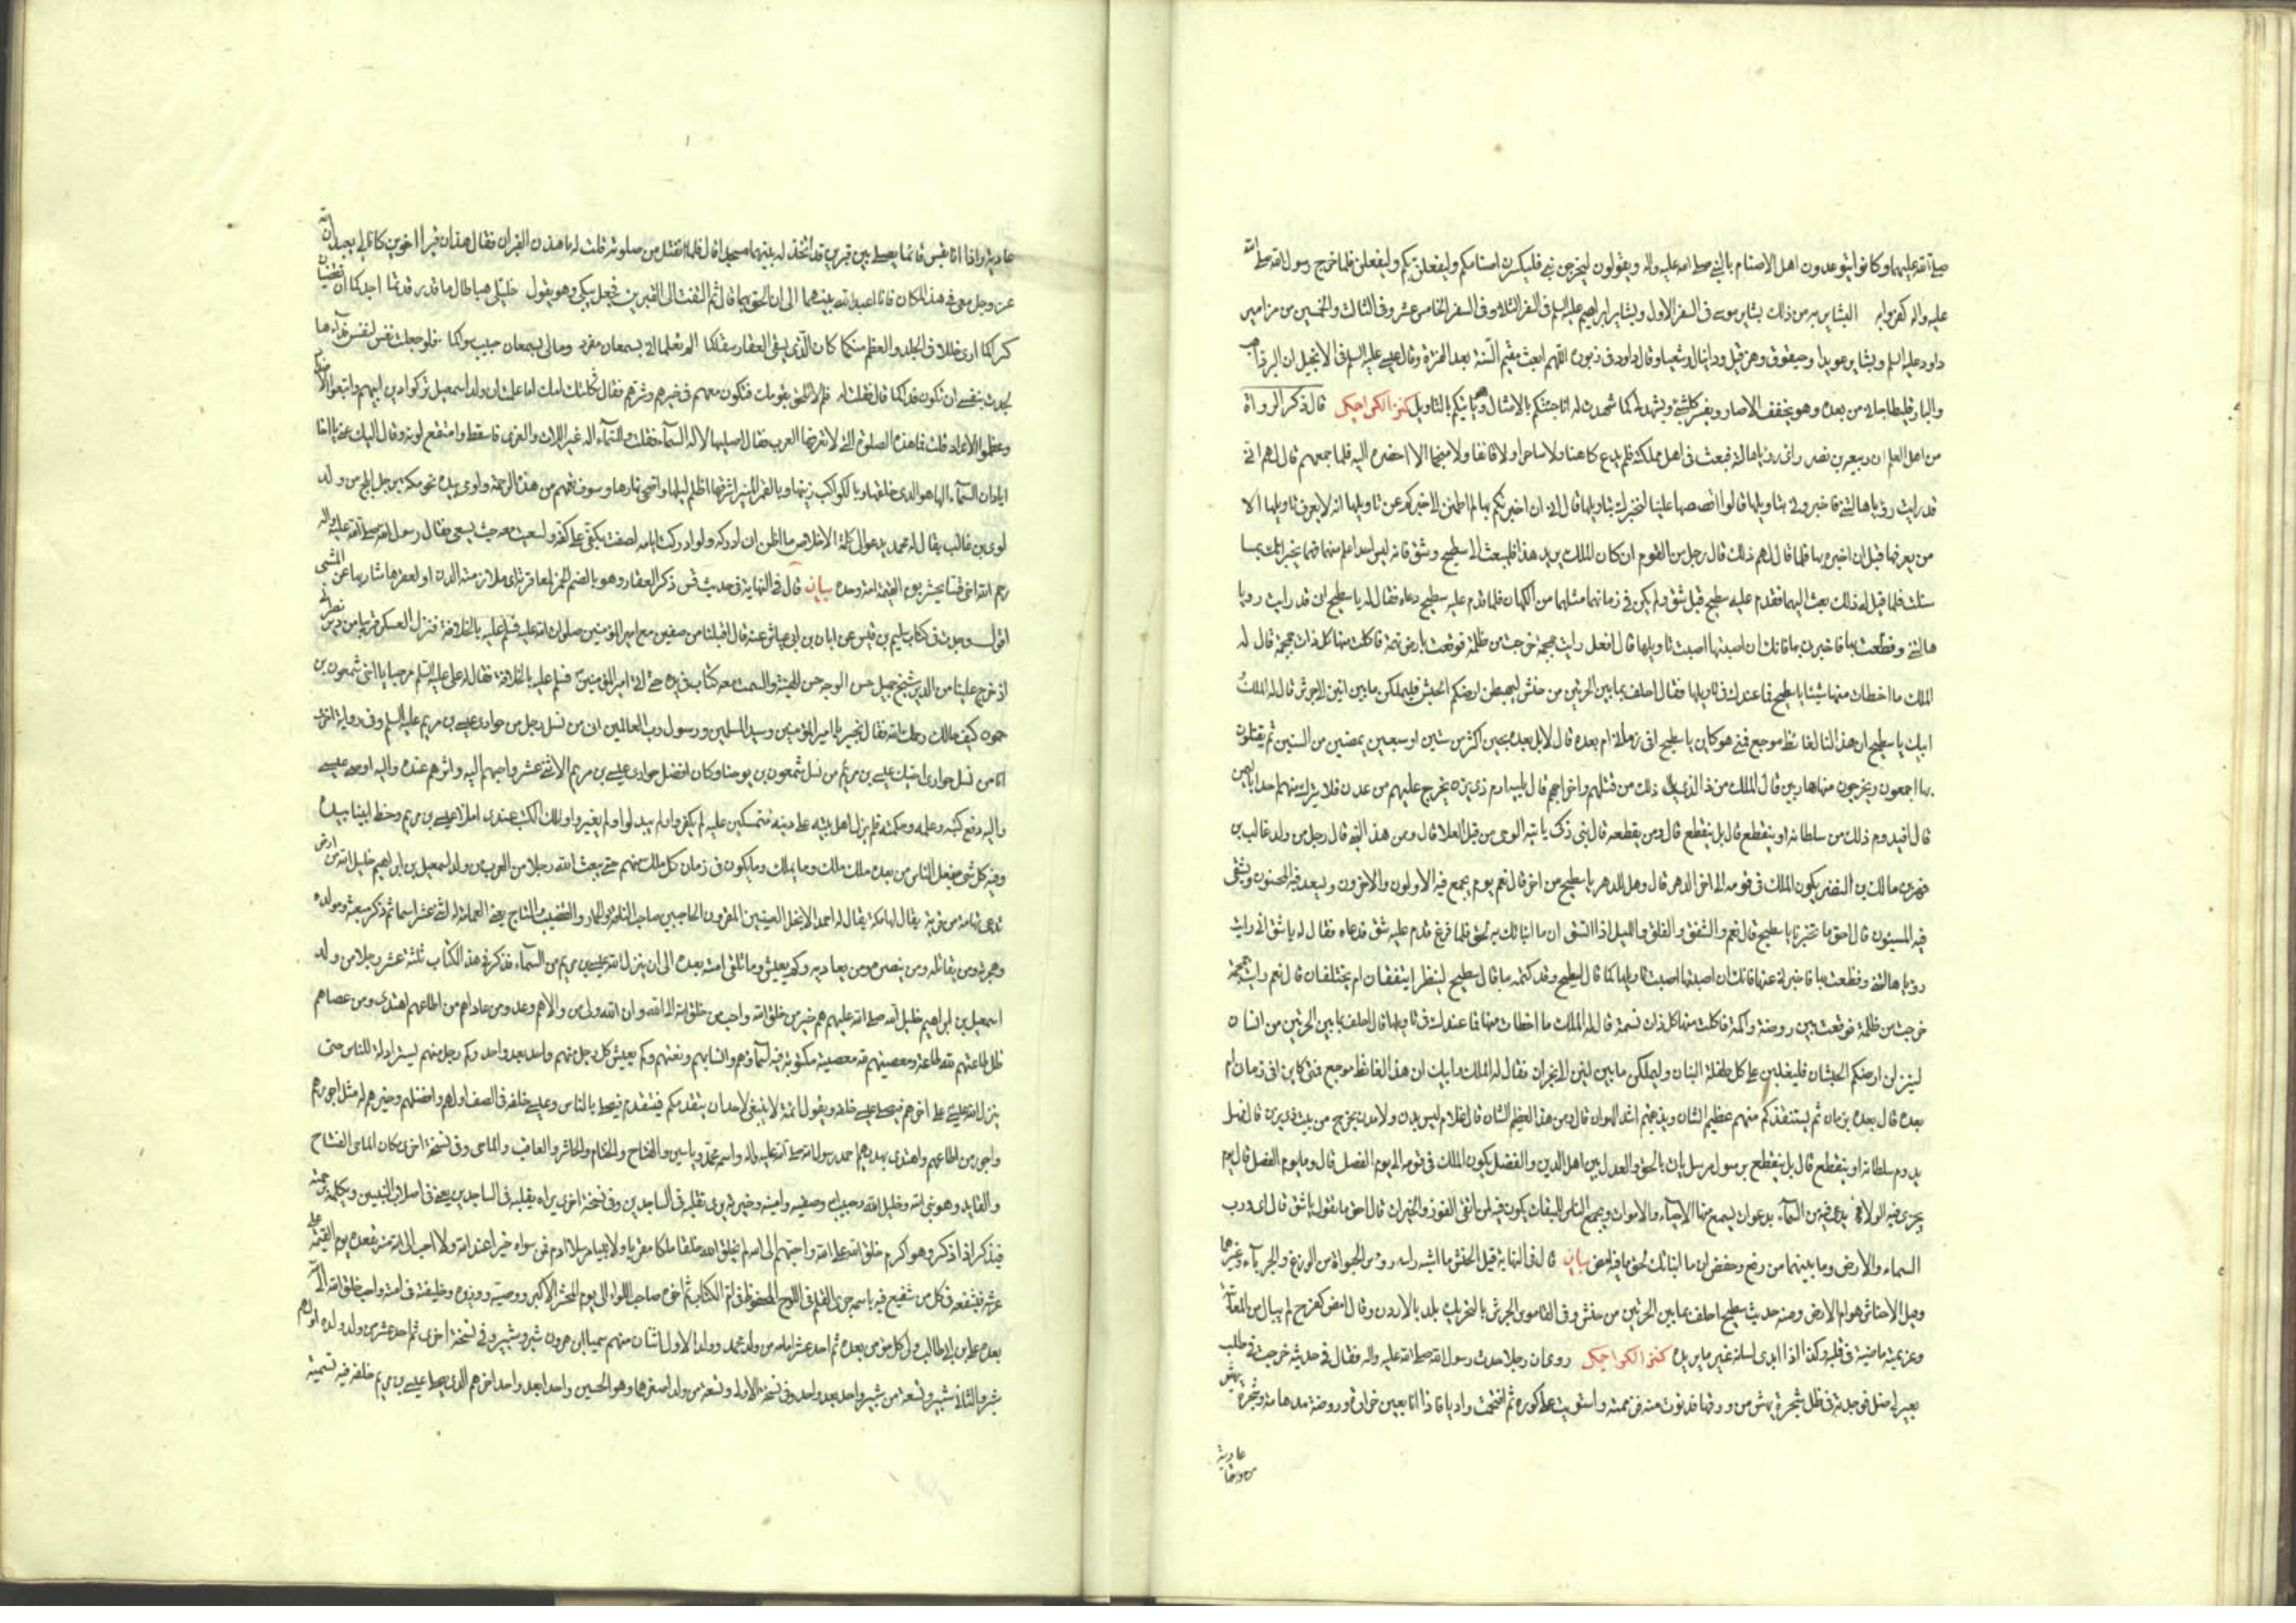 صلى الله عليهما وكانوا يتوعدون اهل الاصنام بالنبي صلى الله عليه واله ويقولون ليخرجن نبي فليكسرن اصنامكم وليفعلن بكم وليفعلن فلما خرج رسول الله صلى الله
عليه واله كفروا به البشاير به من ذلك بشاير موسى في السفر الاول وبشاير ابراهيم عليه السلم في السفر الثاني وفي السفر الخامس عشر وفي الثالث والخمسين من مزامير
داود عليه السلم وبشاير عويديا وحيقوق وحزقيل ودانيال وشعيا وقال داود في زبوره اللهم ابعث مقيم السنة بعد الفترة وقال عيسى عليه السلم في الانجيل ان البر ذاهب
والبارقليطا جاء من بعده وهو يخفف الاصار ويفسر كل شيء ويشهد لي كما شهدت له انا جئتكم بالامثال وهو ياتيكم بالتاويل كنز الكراجكى قال ذكر الرواة
من اهل العلم ان ربيعة بن نصر راى رؤيا هالته فبعث في اهل مملكته فلم يدع كاهنا ولا ساحرا ولا قائفا ولا منجما الا احضره اليه فلما جمعهم قال لهم اني
قد رايت رؤيا هالتني فاخبروني بتاويلها قالوا اقصصها علينا لنخبرك بتاويلها قال اني ان اخبرتكم بها لم اطمئن الى خبركم عن تاويلها انه لا يعرف تاويلها الا
من يعرفها قبل ان اخبره بها فلما قال لهم ذلك قال رجل من القوم ان كان الملك يريد هذا فليبعث الى سطيح وشق فانه ليس احد اعلم منهما فهما يخبرانك بما
سئلت فلما قيل له ذلك بعث اليهما فقدم عليه سطيح قبل شق ولم يكن في زمانهما مثلهما من الكهان فلما قدم عليه سطيح دعاه فقال له يا سطيح ان قد رايت رويا
هالتني وفظعت بها فاخبرني بها فانك ان اصبتها اصبت تاويلها قال افعل رايت جمجمة خرجت من ظلمة فوقعت بارض تهمة فاكلت منها كل ذات جمجمة قال له
الملك ما اخطات منها شيئا يا سطيح فما عندك في تاويلها فقال احلف بما بين الحرتين من حنش ليهبطن ارضكم الحبش فليملكن ما بين ابين الى جرش قال له الملك
ابيك يا سطيح ان هذا لنا لغائظ موجع فمتى هو كاين يا سطيح افي زماني ام بعده قال لا بل بعده بحين اكثر من ستين او سبعين يمضين من السنين ثم يقتلون
بها اجمعون ويخرجون منها هاربين قال الملك من ذا الذي يلى ذلك من قتلهم واخراجهم قال يليه ارم ذي يزن يخرج عليهم من عدن فلا يترك منهم احدا باليمن
قال افيدوم ذلك من سلطانه او ينقطع قال بل ينقطع قال ومن يقطعه قال نبي زكي ياتيه الوحي من قبل العلي قال وممن هذا النبي قال رجل من ولد غالب بن
فهر بن مالك بن النضر يكون الملك في قومه الى اخر الدهر قال وهل للدهر يا سطيح من اخر قال نعم يوم يجمع فيه الاولون والاخرون ويسعد فيه المحسنون ويشقى
فيه المسيئون قال احق ما تخبرنا يا سطيح قال نعم والشفق والفلق والليل اذا اتسق ان ما انبائك به لحق فلما فرغ قدم عليه شق فدعاه فقال له يا شق اني رايت
رؤيا هالتني وفظعت بها فاخبرني عنها فانك ان اصبتها اصبت تاويلها كما قال لسطيح وقد كتمه ما قال سطيح لينظر ايتفقان ام يختلفان قال نعم رايت جمجمة
خرجت من ظلمة فوقعت بين روضة واكمة فاكلت منها كل ذات نسمة قال له الملك ما اخطات منها فما عندك في تاويلها قال احلف بما بين الحرتين من انسان
لينزلن ارضكم الحبشان فليغلبن على كل طفلة البنان وليملكن ما بين ابين الى نجران فقال له الملك ما ابيك ان هذا لغائظ موجع فمتى كاين افي زماني ام
بعده قال بعده بزمان ثم يستنقذكم منهم عظيم الشان ويذيقهم اشد الهوان قال ومن هذا العظيم الشان قال غلام ليس بدن ولا مدن يخرج من بيت ذي يزن قال فهل
يدوم سلطانه او ينقطع قال بل ينقطع برسول مرسل ياتي بالحق والعدل بين اهل الدين والفضل يكون الملك في قومه الى يوم الفصل قال وما يوم الفصل قال يوم
يجزى فيه الولاة يدعى فيه من السماء بدعوات يسمع منها الاحياء والاموات ويجمع الناس للميقات يكون فيه لمن اتقى الفوز والخيرات قال احق ما تقول يا شق قال اى ورب
السماء والارض وما بينهما من رفع وخفض ان ما انبائك لحق ما فيه امض بيان قال في النهاية قيل الحنش ما اشبه راسه رؤس الحيوة من الوزغ والحرباء وغيرهما
وقيل الاحناش هوام الارض ومنه حديث سطيح احلف بما بين الحرتين من حنش وفي القاموس الجرش بالتحريك بلد بالاردن وقال امض كفرح لم يبال من المعاتبة
وعزيمته ماضية في قلبه وكذا اذا ابدى لسانه غير ما يريده كنز الكراجكى روى ان رجلا حدث رسول الله صلى الله عليه واله فقال في حديثه خرجت في طلب
بعير لي ضل فوجدته في ظل شجرة يهش من ورقها فدنوت منه فزممته واستويت على كوره ثم اقتحمت واديا فاذا انا بعين خرارة وروضة مدهامة وشجرة
عادية
عادية واذا انا بقس قائما يصلي بين قبرين قد اتخذ له بينهما مسجدا قال فلما انفتل من صلوته قلت له ما هذان القبران فقال هذان قبرا اخوين كانا لي يعبدان الله
عز وجل معي في هذا المكان فانا اعبد الله بينهما الى ان الحق بهما قال ثم التفت الى القبرين فجعل يبكي وهو يقول خليلي هبا طال ما قد رقدتما اجدكما
كراكما ارى خللا في الجلد والعظم منكما كان الذي يسقي العقار سقاكما الم تعلما اني بسمعان مفرد وما لي بسمعان حبيب سواكما فلو جعلت نفس لنفس فداءها
لجدت بنفسي ان تكون فداكما قال فقلت له فلم لا تلحق بقومك فتكون معهم في خيرهم وشرهم فقال ثكلتك امك اما علمت ان ولد اسمعيل تركوا دين ابيهم واتبعوا الاضداد
وعظموا الانداد قلت فما هذه الصلوة التي لا تعرفها العرب فقال اصليها لاله السماء فقلت وللسماء اله غير اللات والعزى فاسقط وامتقع لونه وقال اليك عني يا اخا
اياد ان السماء الها هو الذي خلقها وبالكواكب زينها وبالقمر المنير اشرقها اظلم ليلها واضحى نهارها وسوف تعمهم من هذه الرحمة واومى بيده نحو مكة برجل ابلج من ولد
لوى بن غالب يقال له محمد يدعو الى كلمة الاخلاص ما اظن اني ادركه ولو ادركت ايامه لصفقت بكفي على كفه ولسعيت معه حيث يسعى فقال رسول الله صلى الله عليه واله
رحم الله اخي قسا يحشر يوم القيمة امة وحده بيان قال في النهاية في حديث قس ذكر العقار وهو بالضم الخمر لمعاقرتها اى ملازمته الدن او لعقرها شاربها عن المشى
اقول وجدت في كتاب سليم بن قيس عن ابان بن ابي عياش عنه قال اقبلنا من صفين مع امير المؤمنين صلوات الله عليه فنزل العسكر قريبا من دير نصراني
اذ خرج علينا من الدير شيخ جميل حسن الوجه حسن الهيئة والسمت معه كتاب في يده حتى اتى امير المؤمنين فسلم عليه بالخلافة فقال له علي عليه السلم مرحبا يا اخي شمعون بن
حمون كيف حالك رحمك الله فقال بخير يا امير المؤمنين وسيد المسلمين ووصي رسول رب العالمين اني من نسل رجل من حواري عيسى بن مريم عليه السلم وفي رواية اخرى
انا من نسل حواري اخيك عيسى بن مريم من نسل شمعون بن يوحنا وكان افضل حواري عيسى بن مريم الاثني عشر واحبهم اليه واثرهم عنده واليه اوصى عيسى
واليه دفع كتبه وعلمه وحكمته فلم يزل اهل بيته على دينه متمسكين عليه لم يكفروا ولم يبدلوا ولم يغيروا وتلك الكتب عندي املاء عيسى بن مريم وخط ابينا بيده
وفيه كل شيء يفعل الناس من بعده ملك ملك وما يملك وما يكون في زمان كل ملك منهم حتى يبعث الله رجلا من العرب من ولد اسمعيل بن ابراهيم خليل الله من ارض
تدعى تهامة من قرية يقال لها مكة يقال له احمد الانجل العينين المقرون الحاجبين صاحب الناقة والحمار والقضيب والتاج يعني العمامة له اثني عشر اسما ثم ذكر مبعثه ومولده
وهجرته ومن يقاتله ومن ينصره ومن يعاديه وكم يعيش وما تلقى امته بعده الى ان ينزل الله عيسى بن مريم من السماء فذكر في هذا الكتاب ثلثة عشر رجلا من ولد
اسمعيل بن ابراهيم خليل الله صلى الله عليهم هم خير من خلق الله واحب من خلق الله الى الله وان الله ولي من والاهم وعدو من عاداهم من اطاعهم اهتدى ومن عصاهم
ضل طاعتهم لله طاعة ومعصيتهم لله معصية مكتوبة فيه اسماؤهم وانسابهم ونعتهم وكم يعيش كل رجل منهم واحد بعد واحد وكم رجل منهم يستر ادلته للناس حتى
ينزل الله عيسى على اخرهم فيصلى عيسى خلفه ويقول ائمة لا ينبغي لاحد ان يتقدمكم فيتقدم فيصلي بالناس وعيسى خلفه في الصف اولهم وافضلهم وخيرهم له مثل اجورهم
واجور من اطاعهم واهتدى بهديهم احمد رسول الله صلى الله عليه واله واسمه محمد وياسين والفتاح والختام والحاشر والعاقب والماحي وفي نسخة اخرى مكان الماحي الفتاح
والقايد وهو نبي الله وخليل الله وحبيب الله وصفيه وامينه وخيرته يرى تقلبه في الساجدين وفي نسخة اخرى يراه بقلبه في الساجدين يعني في اصلاب النبيين ويكلمه برحمته
فيذكر اذا ذكر وهو اكرم خلق الله على الله واحبهم الى الله لم يخلق الله خلقا ملكا مقربا ولا نبيا مرسلا ادم فمن سواه خيرا عند الله ولا احب الى الله منه يقعده يوم القيمة على
عرشه ويشفعه في كل من شفع فيه باسمه جرى القلم في اللوح المحفوظ في ام الكتاب ثم اخوه صاحب اللواء الى يوم المحشر الاكبر ووصيه ووزيره وخليفته في امته واحب خلق الله الى الله
بعده علي بن ابي طالب ولي كل مؤمن بعده ثم احد عشر اماما من ولد محمد وولد الاول اثنان منهم سميا ابني هرون شبر وشبير وفي نسخة اخرى ثم احد عشر من ولده وولد ولده اولهم
شبر والثاني شبير وتسعة من شبير واحد بعد واحد وفي نسخة الاولى وتسعة من ولد اصغرهما وهو الحسين واحدا بعد واحد اخرهم الذي يصلي عيسى بن مريم خلفه فيه تسمية